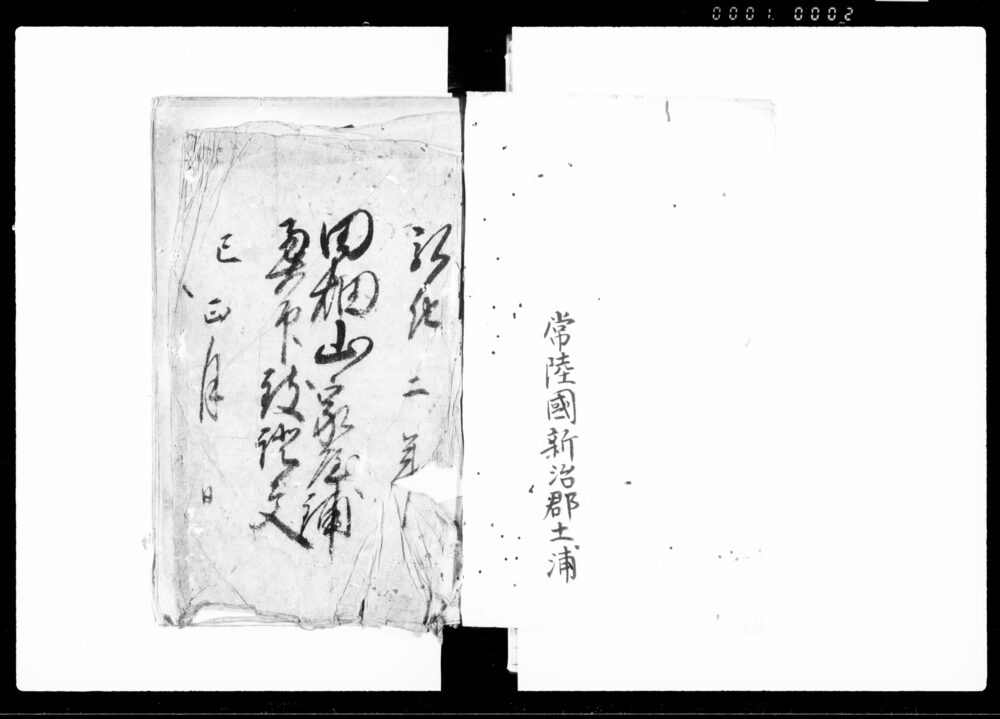 0001. 0002
常陸國新治郡土浦
弘化二年
田畑山家屋鋪
奥印致證文
巳正月日